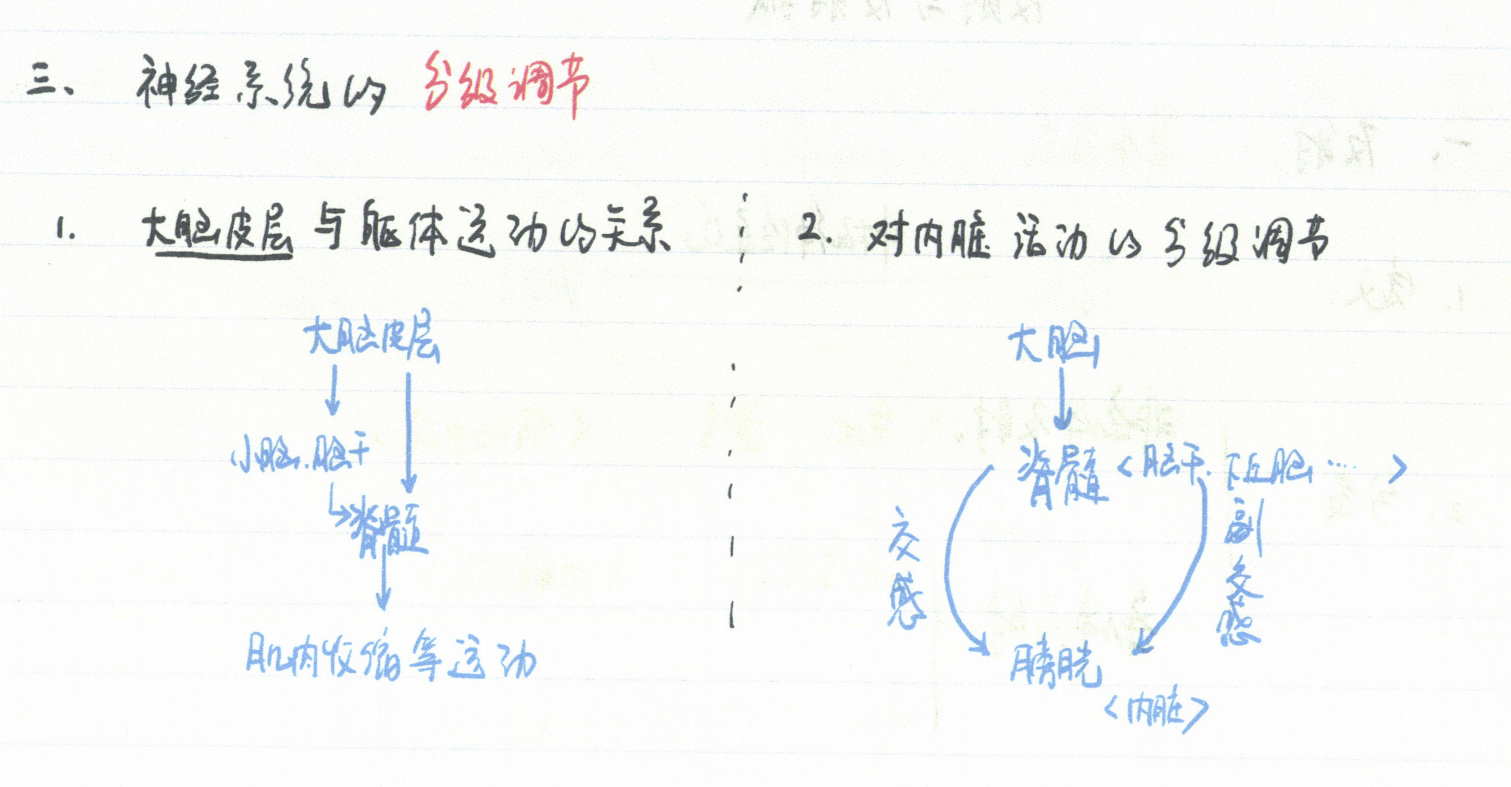 三、 神经系统的 分级调节
1. 大脑皮层与躯体运动的关系
大脑皮层
小脑.脑干
脊髓
肌肉收缩等运动
2. 对内脏活动的分级调节
大脑
脊髓<脑干.下丘脑……>
交感
副交感
膀胱
<内脏>